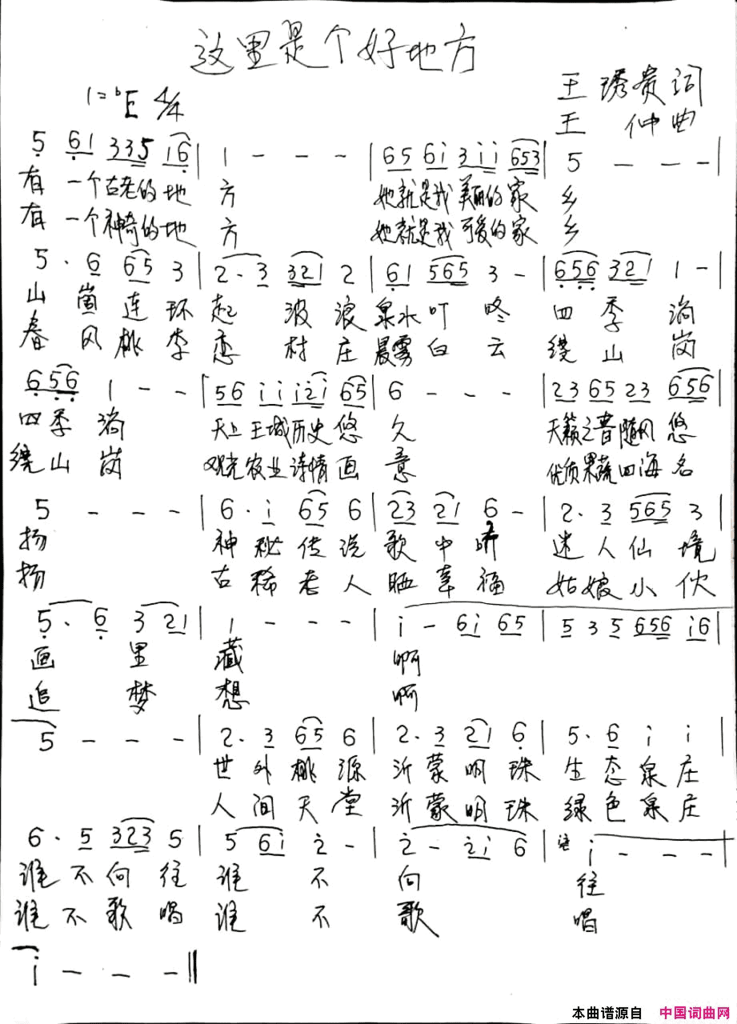 这里是个好地方
1=♭E 4/4
王琇贵词
王 仲曲
5 61 335 16 | 1 - - - | 65 6i 3ii 653 | 5 - - - |
有一个古老的地方 她就是我美丽的家乡
有一个神奇的地方 她就是我可爱的家乡
5· 6 65 3 | 2·3 321 2 | 61 565 3 - | 656 321 1 - |
山崮连环起波浪泉水叮咚四季淌
春风桃李恋村庄晨雾白云绕山岗
656 1 - - | 56 i i i2i 65 | 6 - - - | 23 65 23 656 |
四季淌 天上王城历史悠久 天籁之音随风悠
绕山岗 观光农业诗情画意 优质果蔬四海名
5 - - - | 6· i 65 6 | 23 21 6 - | 2·3 565 3 |
扬 神秘传说歌中唱 迷人仙境
扬 古稀老人晒幸福 姑娘小伙
5·6 3 21 | 1 - - - | i - 6i 65 | 5 3 5 656 i6 |
画里藏 啊
追梦想 啊
5 - - - | 2·3 65 6 | 2·3 21 6 | 5·6 i i |
世外桃源沂蒙明珠生态泉庄
人间天堂沂蒙明珠绿色泉庄
6·5 323 5 | 5 6i 2 - | 2 - 2i 6 | i - - - |
谁不向往谁不向往
谁不歌唱谁不歌唱
i - - - ‖
本曲谱源自 中国词曲网